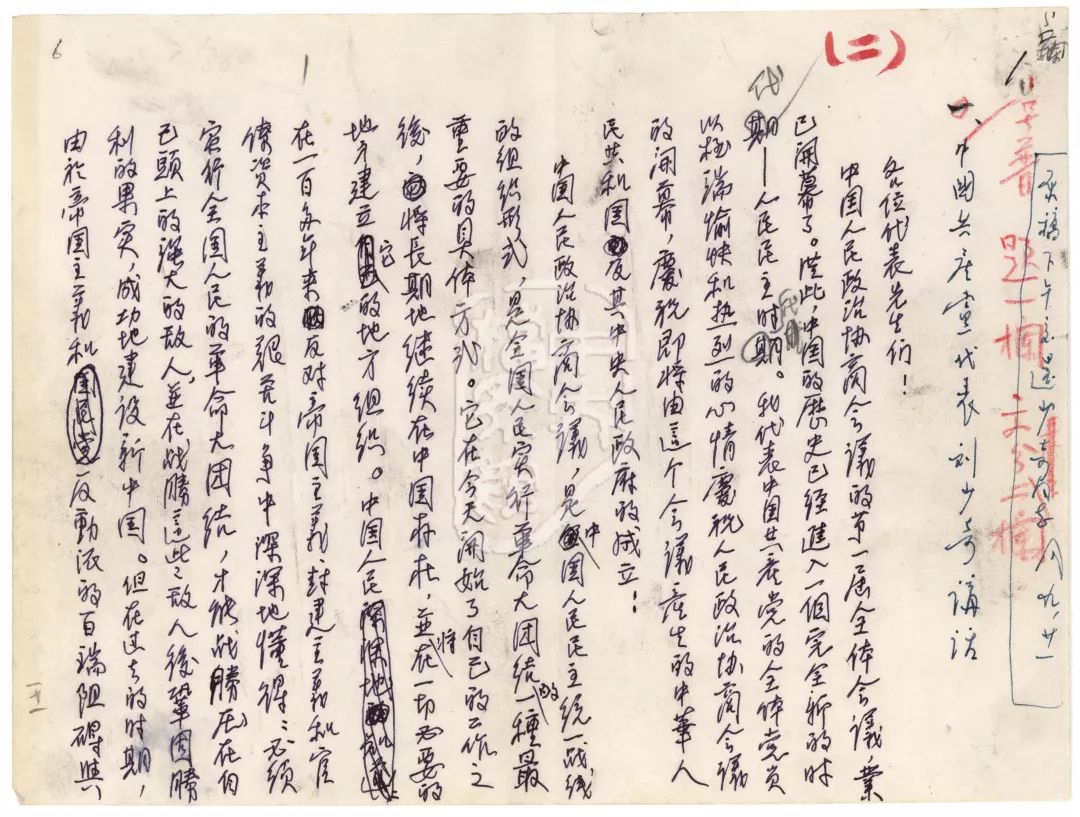 (二)
一、中国共产党代表刘少奇講话
各位代表先生们！
中国人民政治协商会議的第一届全体会議，業
已開幕了。從此，中国的歷史已经進入一個完全新的时
代
期——人民民主时期。我代表中国共產党的全体党员
以極端愉快和热列的心情慶祝人民政治协商会議
的開幕，慶祝即将由這个会議產生的中華人
民共和国及其中央人民政府的成立！
中国人民政治协商会議，是中国人民民主统一战线
的组织形式，是全国人民实行革命大团结的一種最
重要的具体方式。它在今天開始了自己的工作之
後，将長期地继续在中国存在，並将在一切必要的
地方建立它的地方组织。中国人民
在一百多年来反对帝国主義、封建主義和官
僚資本主義的艱苦斗争中深深地懂得：必须
实行全国人民的革命大团结，才能战勝压在自
己頭上的强大的敌人，並在战勝這些敌人後鞏固勝
利的果实，成功地建设新中国。但在过去的时期，
由於帝国主義和国民党反動派的百端阻碍與
6